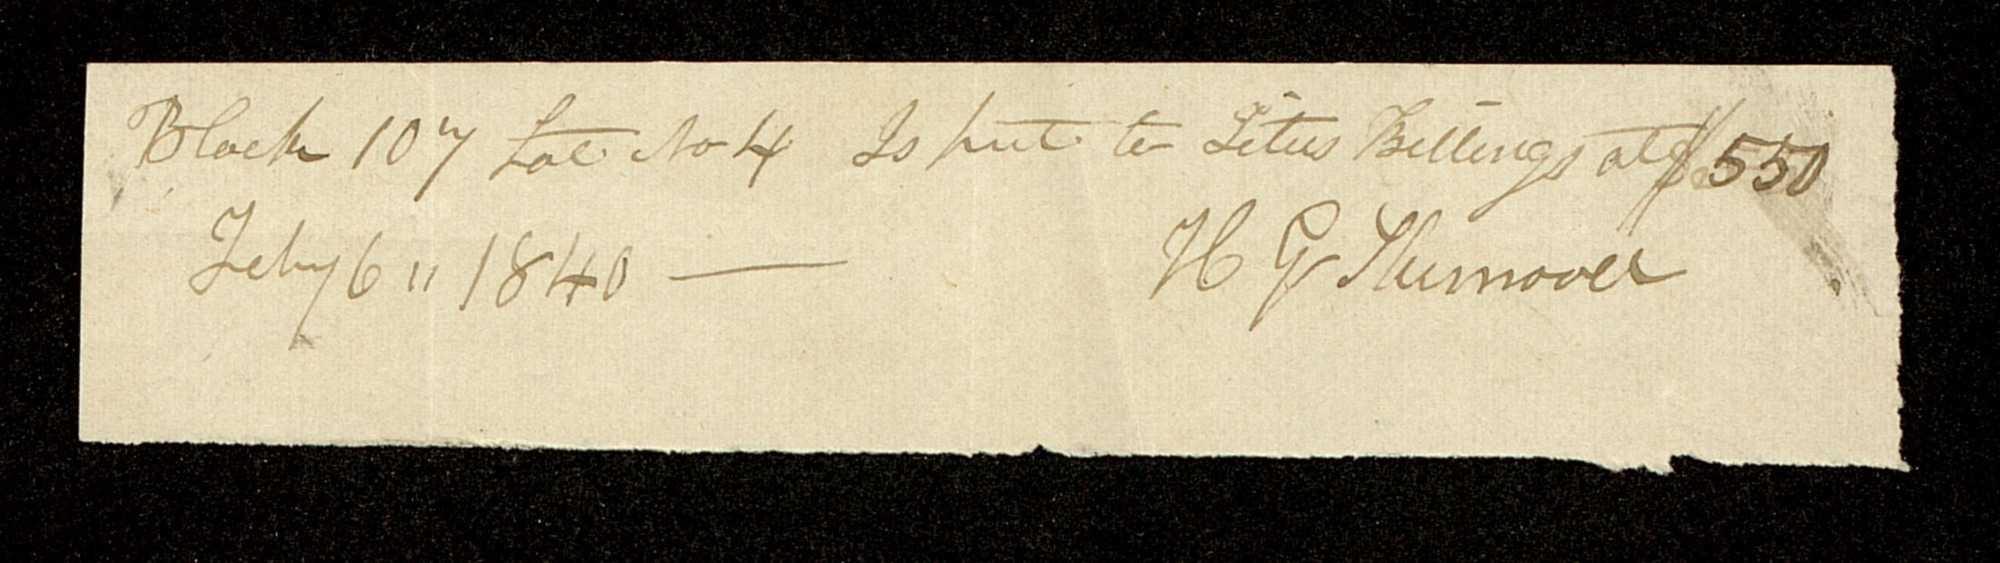 Block 107 Lot No 4 Is put to Titus Billings at $550
Feby 6 " 1840 — H G Sherwood